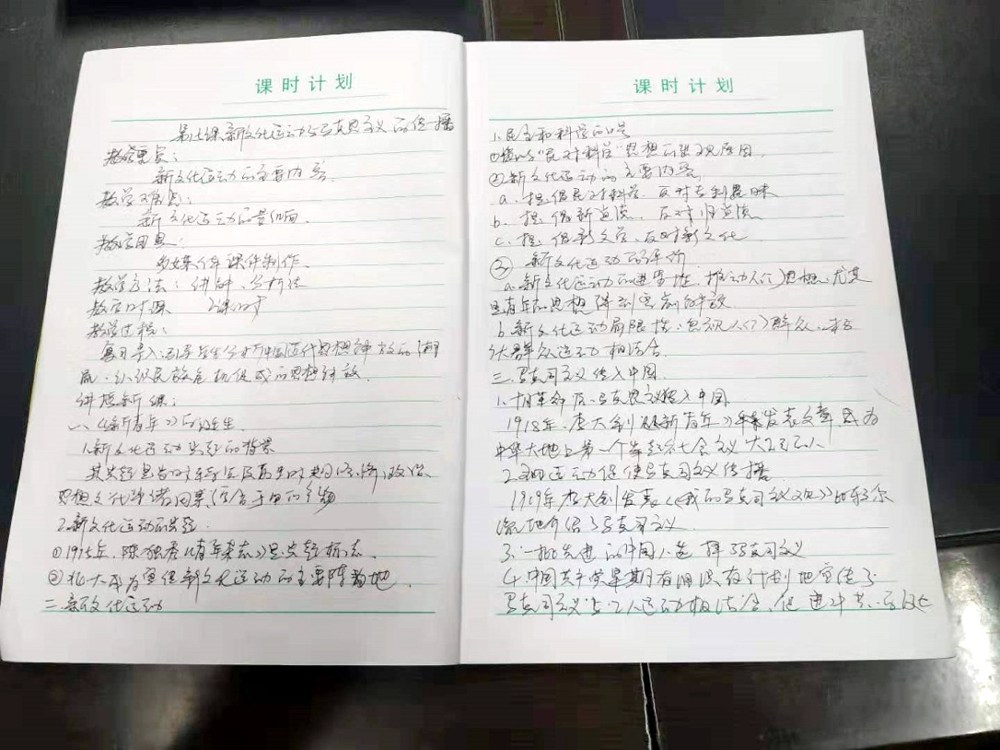 课时计划
第 课 新文化运动与马克思主义的传播
教学重点：
新文化运动的主要内容
教学难点：
新文化运动的影响
教学用具：
多媒体课件制作、
教学方法：讲解、分析法
教学时课 2课时
教学过程：
复习导入：引导学生分析中国近代思想解放的潮
流，
讲授新课：
一、《新青年》的诞生
1.新文化运动兴起的背景
其兴起是当时 政治、
思想文化 诸因素
2.新文化运动的兴起
①1915年，陈独秀《青年杂志》是兴起标志.
②北大成为宣传新文化运动的主要阵地.
二 新文化运动
课时计划
1.民主和科学的口号
① “民主科学”思想
②新文化运动的主要内容
a.提倡民主科学，反对专制愚昧
b.提倡新道德，反对旧道德
c.提倡新文学，反对 文化
③ 新文化运动的评价
a.新文化运动的进步性：推动人们思想，尤其
是青年的思想得到空前解放
b.新文化运动局限性：忽视人们群众，未与
群众运动相结合.
三.马克思主义传入中国.
1.十月革命后马克思主义传入中国
1918年，李大钊 《新青年》 发表文章成为
中华大地上第一个 主义 人
2.五四运动促使马克思主义传播
1919年李大钊发表《我的马克思主义观》比较系
统地介绍了马克思主义
3.一批先进的中国人选择马克思主义
4.中国共产党早期 有计划地宣传了
马克思主义与工人运动相结合，促进